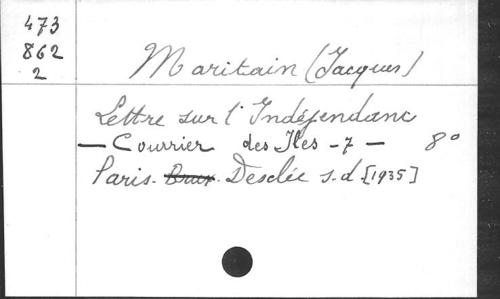 473
862
2
Maritain (Jacques)
Lettre sur l'Indépendanc
— Courrier des Iles - 7 — 8°
Paris. Brux. Desclée s.d. [1935]